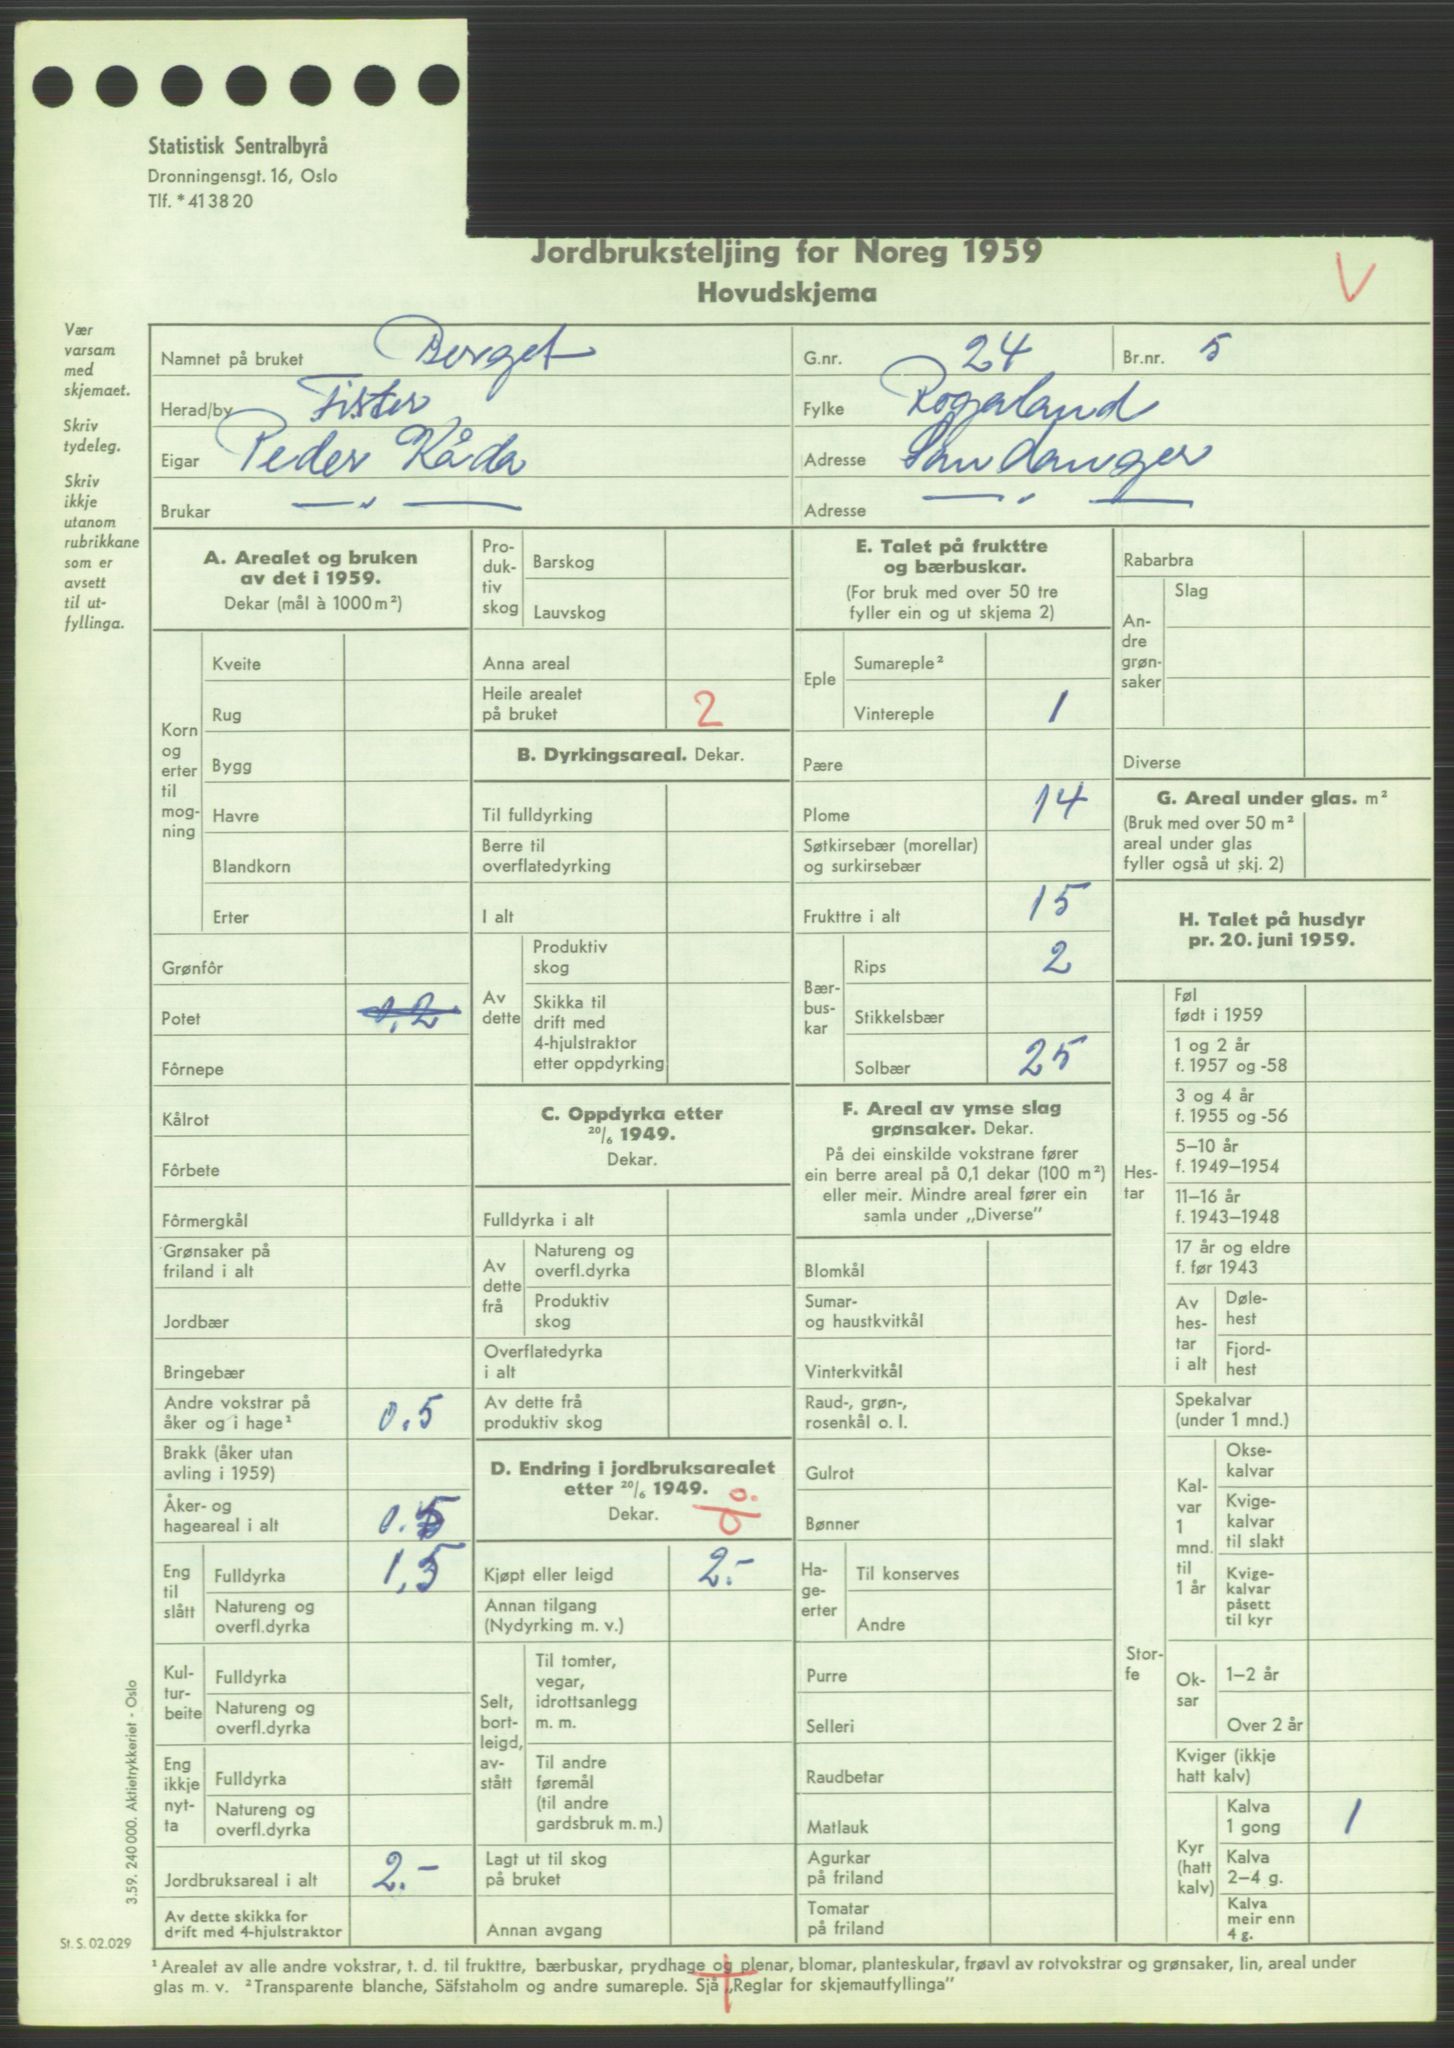 Statistisk Sentralbyrå
Dronningensgt. 16, Oslo
Tlf. * 41 38 20
Jordbruksteljing for Noreg 1959
Hovudskjema
V
Vær
varsam
med
skjemaet.
Skriv
tydeleg.
Skriv
ikkje
utanom
rubrikkane
som er
avsett
til ut-
fyllinga.
Namnet på bruket Berget G.nr. 24 Br.nr. 5
Herad/by Fister Fylke Rogaland
Eigar Peder Kåda Adresse Sandanger
Brukar — „ — Adresse — „ —
A. Arealet og bruken
av det i 1959.
Dekar (mål à 1000 m²)
Korn
og
erter
til
mog-
ning
Kveite
Rug
Bygg
Havre
Blandkorn
Erter
Grønfôr
Potet 0.2
Fôrnepe
Kålrot
Fôrbete
Fôrmergkål
Grønsaker på
friland i alt
Jordbær
Bringebær
Andre vokstrar på
åker og i hage¹ 0.5
Brakk (åker utan
avling i 1959)
Åker- og
hageareal i alt 0.5
Eng
til
slått
Fulldyrka 1,5
Natureng og
overfl.dyrka
Kul-
tur-
beite
Fulldyrka
Natureng og
overfl.dyrka
Eng
ikkje
nyt-
ta
Fulldyrka
Natureng og
overfl.dyrka
Jordbruksareal i alt 2.-
Av dette skikka for
drift med 4-hjulstraktor
Pro-
duk-
tiv
skog
Barskog
Lauvskog
Anna areal
Heile arealet
på bruket 2
B. Dyrkingsareal. Dekar.
Til fulldyrking
Berre til
overflatedyrking
I alt
Av
dette
Produktiv
skog
Skikka til
drift med
4-hjulstraktor
etter oppdyrking
C. Oppdyrka etter
20/6 1949.
Dekar.
Fulldyrka i alt
Av
dette
frå
Natureng og
overfl.dyrka
Produktiv
skog
Overflatedyrka
i alt
Av dette frå
produktiv skog
D. Endring i jordbruksarealet
etter 20/6 1949.
Dekar.
Kjøpt eller leigd 2.-
Annan tilgang
(Nydyrking m. v.)
Selt,
bort-
leigd,
av-
stått
Til tomter,
vegar,
idrottsanlegg
m. m.
Til andre
føremål
(til andre
gardsbruk m. m.)
Lagt ut til skog
på bruket
Annan avgang
E. Talet på frukttre
og bærbuskar.
(For bruk med over 50 tre
fyller ein og ut skjema 2)
Eple
Sumareple²
Vintereple 1
Pære
Plome 14
Søtkirsebær (morellar)
og surkirsebær
Frukttre i alt 15
Bær-
bus-
kar
Rips 2
Stikkelsbær
Solbær 25
F. Areal av ymse slag
grønsaker. Dekar.
På dei einskilde vokstrane fører
ein berre areal på 0,1 dekar (100 m²)
eller meir. Mindre areal fører ein
samla under „Diverse”
Blomkål
Sumar-
og haustkvitkål
Vinterkvitkål
Raud-, grøn-,
rosenkål o. l.
Gulrot
Bønner
Ha-
ge-
erter
Til konserves
Andre
Purre
Selleri
Raudbetar
Matlauk
Agurkar
på friland
Tomatar
på friland
Rabarbra
An-
dre
grøn-
saker
Slag
Diverse
G. Areal under glas. m²
(Bruk med over 50 m²
areal under glas
fyller også ut skj. 2)
H. Talet på husdyr
pr. 20. juni 1959.
Hes-
tar
Føl
født i 1959
1 og 2 år
f. 1957 og -58
3 og 4 år
f. 1955 og -56
5–10 år
f. 1949–1954
11–16 år
f. 1943–1948
17 år og eldre
f. før 1943
Av
hes-
tar
i alt
Døle-
hest
Fjord-
hest
Stor-
fe
Spekalvar
(under 1 mnd.)
Kal-
var
1
mnd.
til
1 år
Okse-
kalvar
Kvige-
kalvar
til slakt
Kvige-
kalvar
påsett
til kyr
Ok-
sar
1–2 år
Over 2 år
Kviger (ikkje
hatt kalv)
Kyr
(hatt
kalv)
Kalva
1 gong 1
Kalva
2–4 g.
Kalva
meir enn
4 g.
3.59. 240 000. Aktietrykkeriet - Oslo
St. S. 02.029
¹ Arealet av alle andre vokstrar, t. d. til frukttre, bærbuskar, prydhage og plenar, blomar, planteskular, frøavl av rotvokstrar og grønsaker, lin, areal under
glas m. v. ² Transparente blanche, Säfstaholm og andre sumareple. Sjå „Reglar for skjemautfyllinga”